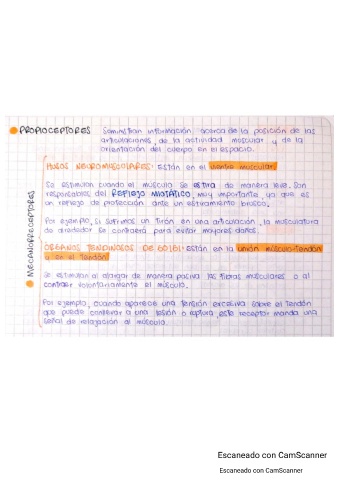 PROPIOCEPTORES Suministran información acerca de la posición de las
articulaciones, de la actividad muscular y de la
orientación del cuerpo en el espacio.
HUSOS NEUROMUSCULARES: Están en el vientre muscular.
Se estimulan cuando el músculo se estira de manera leve. Son
responsables del REFLEJO MIOTÁTICO, muy importante, ya que es
un reflejo de protección ante un estiramiento brusco.
Por ejemplo, si sufrimos un tirón en una articulación, la musculatura
de alrededor se contraerá para evitar mayores daños.
MECANORRECEPTORES
ÓRGANOS TENDINOSOS DE GOLGI: están en la unión músculo-tendón
y en el tendón.
Se estimulan al alargar de manera pasiva las fibras musculares o al
contraer voluntariamente el músculo.
Por ejemplo, cuando aparece una tensión excesiva sobre el tendón
que puede conllevar a una lesión o ruptura, este receptor manda una
señal de relajación al músculo.
Escaneado con CamScanner
Escaneado con CamScanner